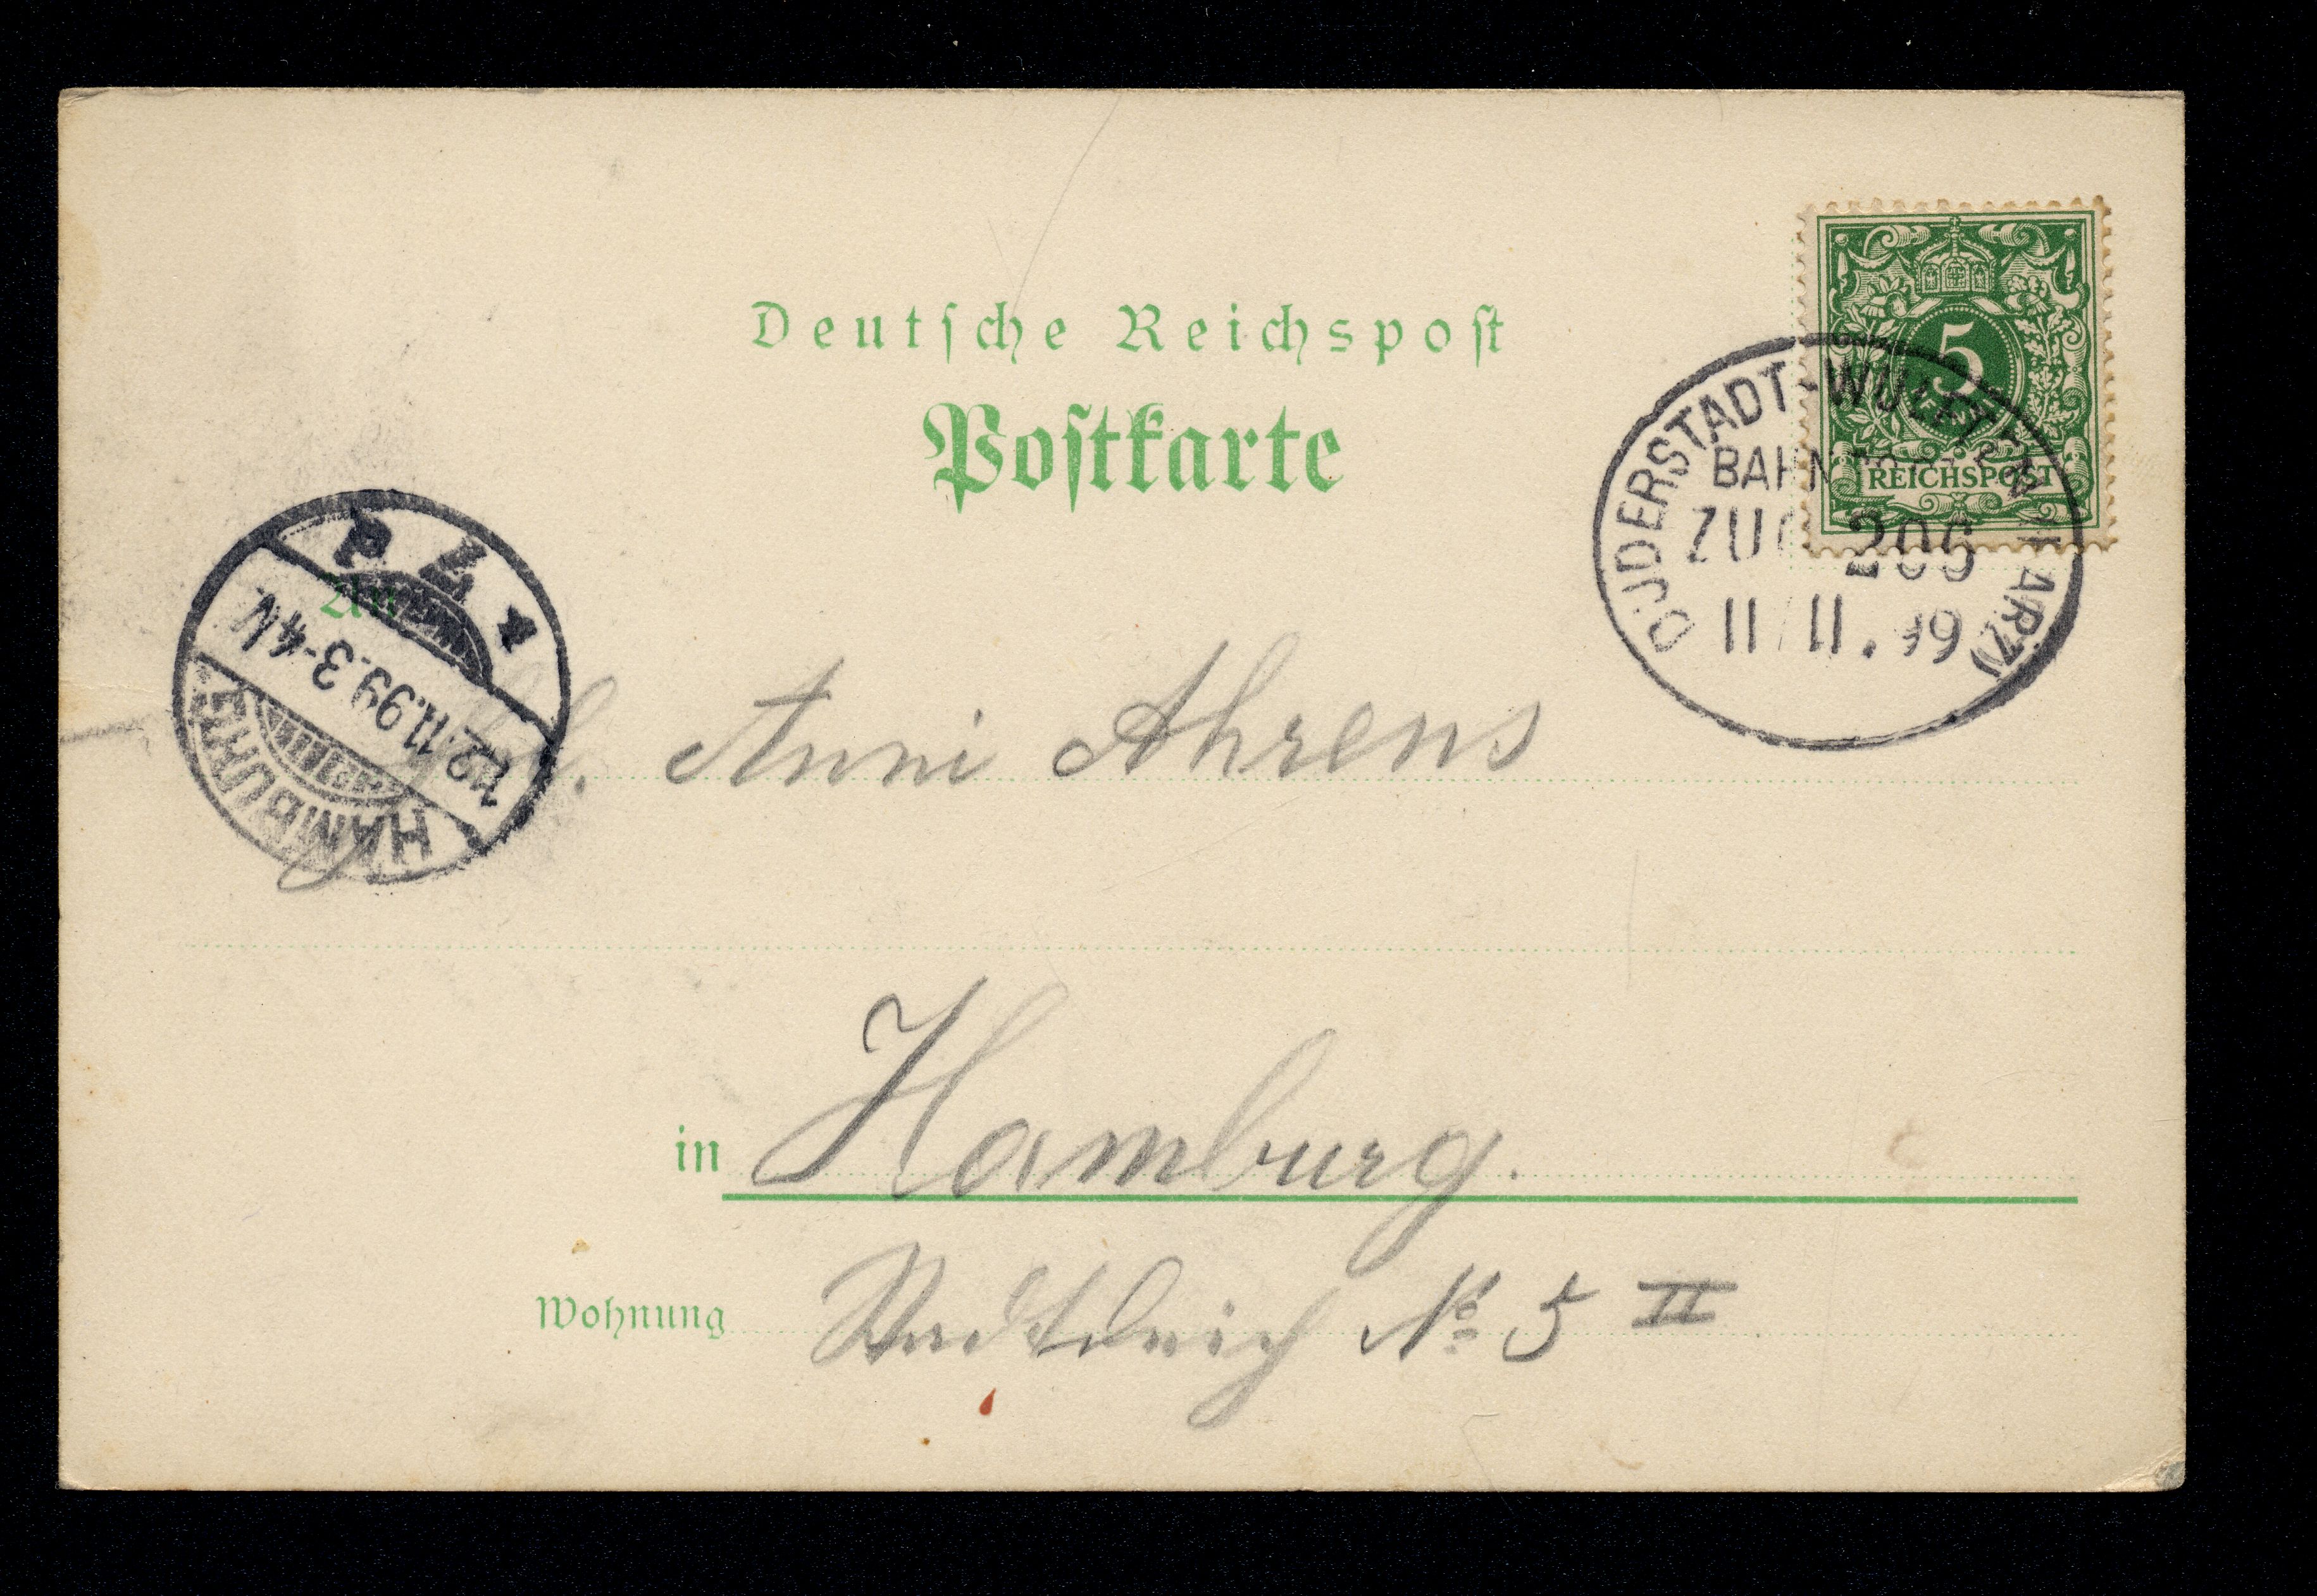 Deutsche Reichspost
Postkarte
5
REICHSPOST
DUDERSTADT-
ZUG 206
11/11.99
P L *
12.11.99.3-4N.
HAMBURG
An
Anni Ahrens
in Hamburg.
Wohnung № 5 II